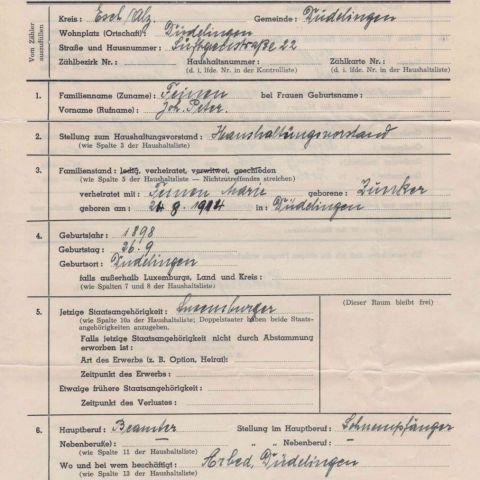 Vom Zähler auszufüllen
Kreis: Esch/Alz. Gemeinde: Düdelingen
Wohnplatz (Ortschaft): Düdelingen
Straße und Hausnummer: 22
Zählbezirk Nr.: Haushaltsnummer: Zählkarte Nr.:
(d. i. lfde. Nr. in der Kontrolliste) (d. i. lfde. Nr. in der Haushaltsliste)
1. Familienname (Zuname): Feinen bei Frauen Geburtsname:
Vorname (Rufname): Joh. Peter.
2. Stellung zum Haushaltungsvorstand: Haushaltungsvorstand
(wie Spalte 3 der Haushaltsliste)
3. Familienstand: ledig, verheiratet, verwitwet, geschieden
(wie Spalte 5 der Haushaltsliste — Nichtzutreffendes streichen)
verheiratet mit: Feinen Marie geborene: Zunker
geboren am: 8. in: Düdelingen
4. Geburtsjahr: 1898
Geburtstag: 26.9
Geburtsort: Düdelingen
falls außerhalb Luxemburgs, Land und Kreis:
(wie Spalten 7 und 8 der Haushaltsliste)
5. Jetzige Staatsangehörigkeit: Luxemburger (Dieser Raum bleibt frei)
(wie Spalte 10a der Haushaltsliste; Doppelstaater haben beide Staats-
angehörigkeiten anzugeben.
Falls jetzige Staatsangehörigkeit nicht durch Abstammung
erworben ist:
Art des Erwerbs (z. B. Option, Heirat):
Zeitpunkt des Erwerbs:
Etwaige frühere Staatsangehörigkeit:
Zeitpunkt des Verlustes:
6. Hauptberuf: Beamter Stellung im Hauptberuf: Lohnempfänger
Nebenberuf(e): — „ „ Nebenberuf: —
(wie Spalte 11 der Haushaltsliste)
Wo und bei wem beschäftigt: Arbed, Düdelingen
(wie Spalte 13 der Haushaltsliste)